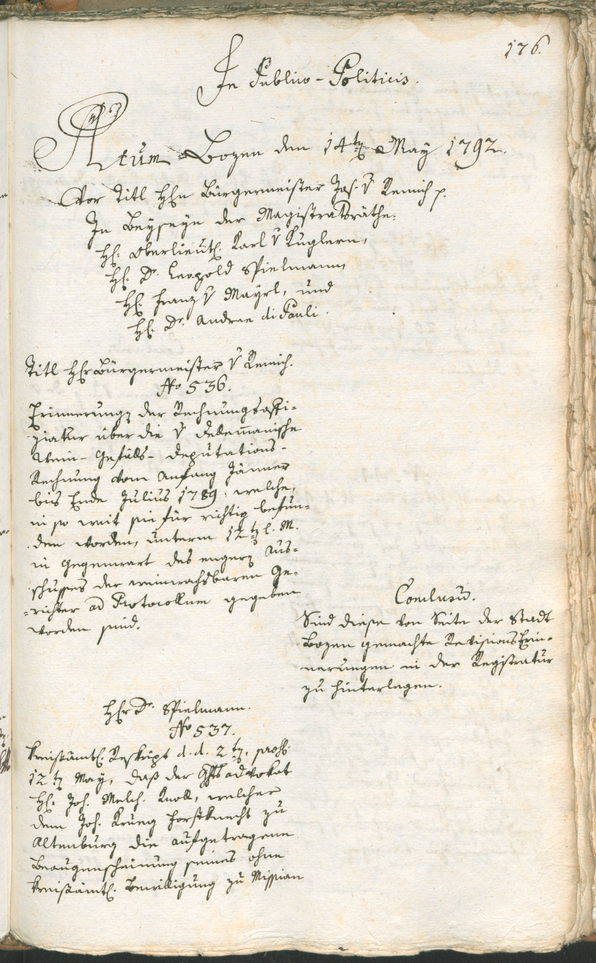 176.
In Publico-Politicis.
Actum Bozen den 14ten May 1792.
Vor Titl Hhn Bürgermeister Jos. v Remich p.
In Beyseyn der Magistratsräthe:
Hh. Oberlieuth. Karl v Kuglern,
Hh. Dr. Leopold Spielmann,
Hh. Franz v Mayrl, und
Hh. Dr. Andree di Pauli.
Titl Hhr Bürgermeister v Remich.
No 536.
Erinnerung der Rechnungsoffi-
ziatur über die v
Wein-Gefälls-Deputations-
Rechnung vom Anfang Jänner
bis Ende Julius 1789, welche,
in so weit sie für richtig befun-
den worden, unterm 12ten l. M.
in Gegenwart des engern Aus-
schusses der Ge-
richter ad Protocollum gegeben
worden sind.
Conclusum.
Sind diese von Seite der Stadt
Bozen gemachte Revisions Erin-
nerungen in der Registratur
zu hinterlegen.
Hhr Dr. Spielmann.
No 537.
Kreisämtl. Reskript d. d. 2ten, präs.
12ten May, daß der advokat
Hh. Joh. Melch. Knoll, welcher
dem Joh. Forstknecht zu
Altenburg die aufgetragene
Beaugenscheinung seines ohne
kreisämtl. Bewilligung zu Missian